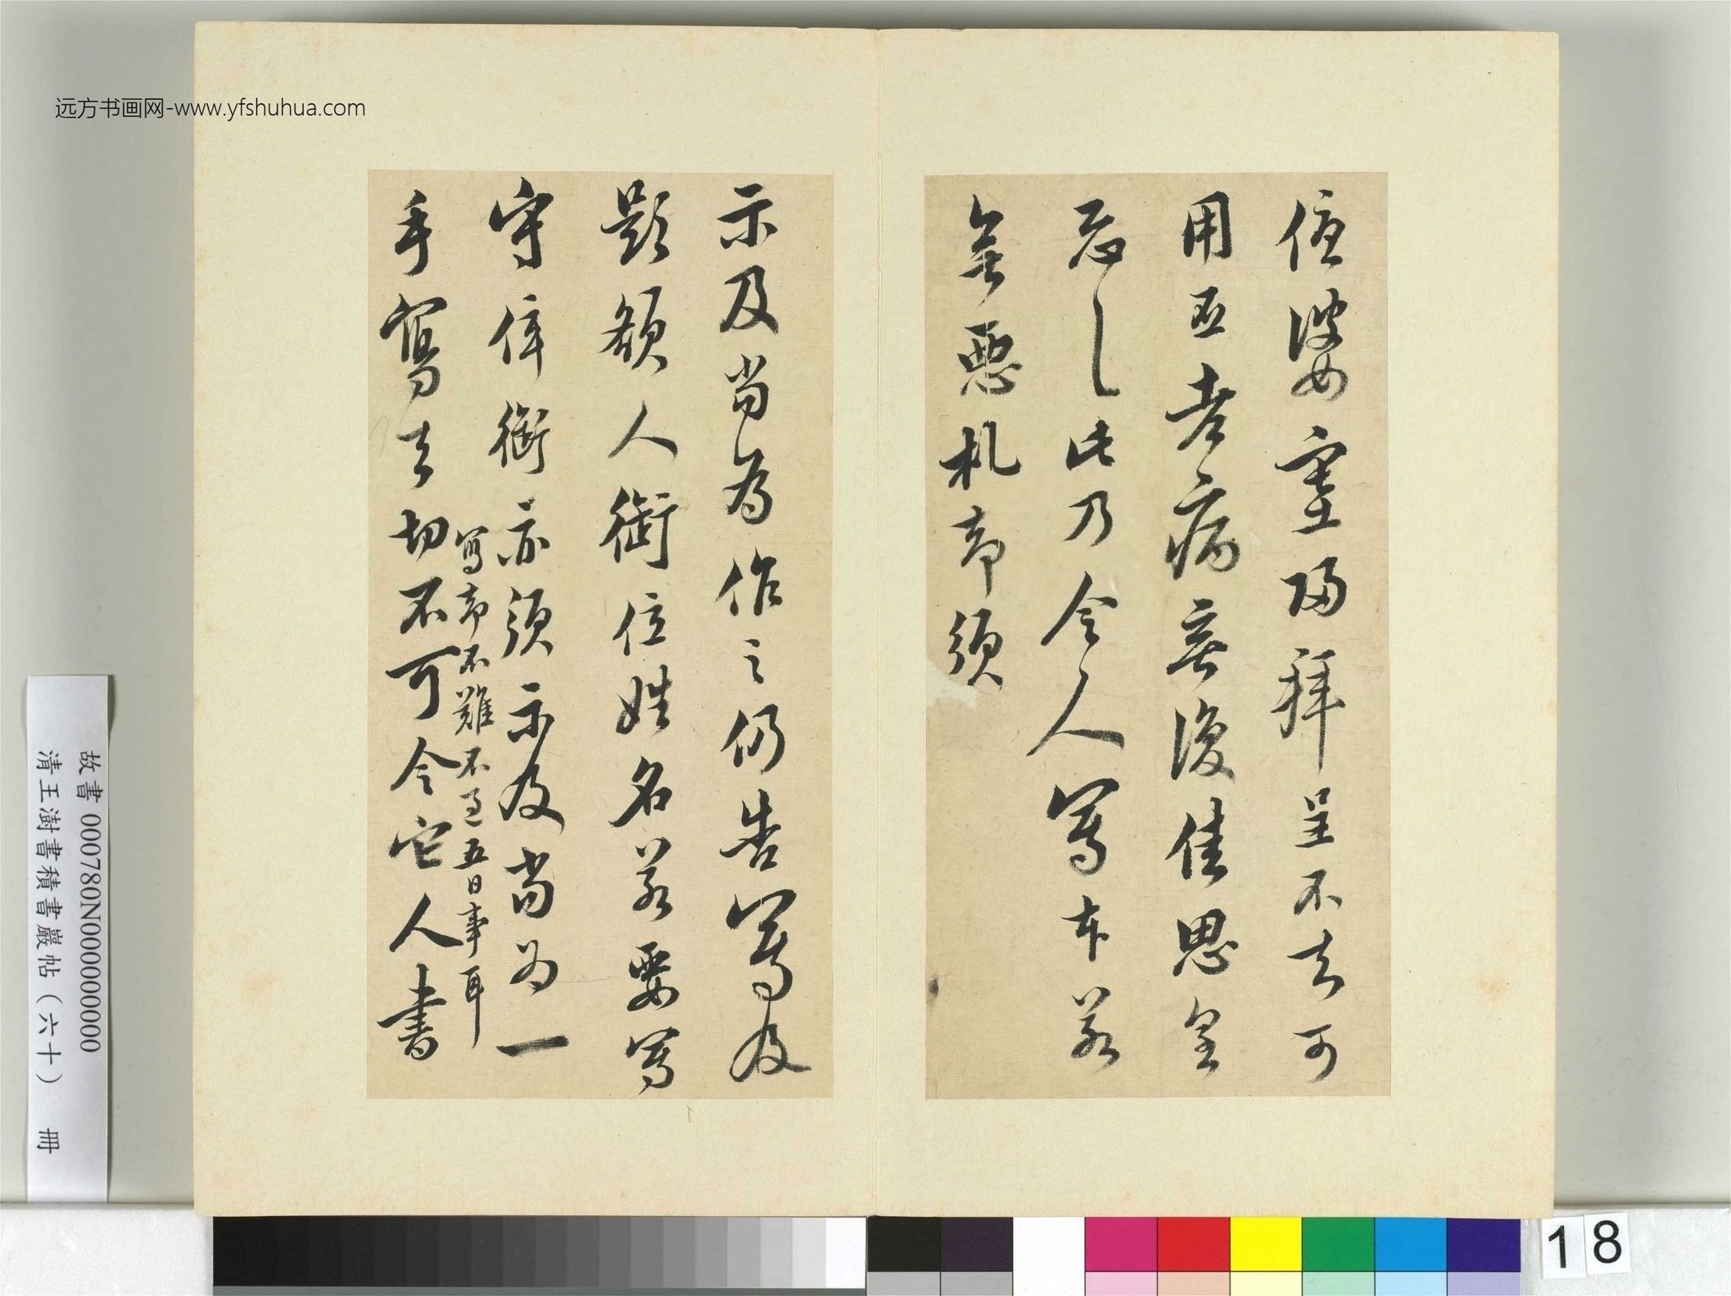 婆室歸拜呈不去可
用老病無復佳思皇
恐此乃令人寫本若
無惡札亦須
示及當為作之仍告寫及
題額人銜位姓名若要寫
守倅銜亦須示及當為一
寫亦不難不過五日事耳
手寫去切不可令它人書
远方书画网-www.yfshuhua.com
故書 000780N000000000
清王澍書積書巖帖(六十) 冊
18